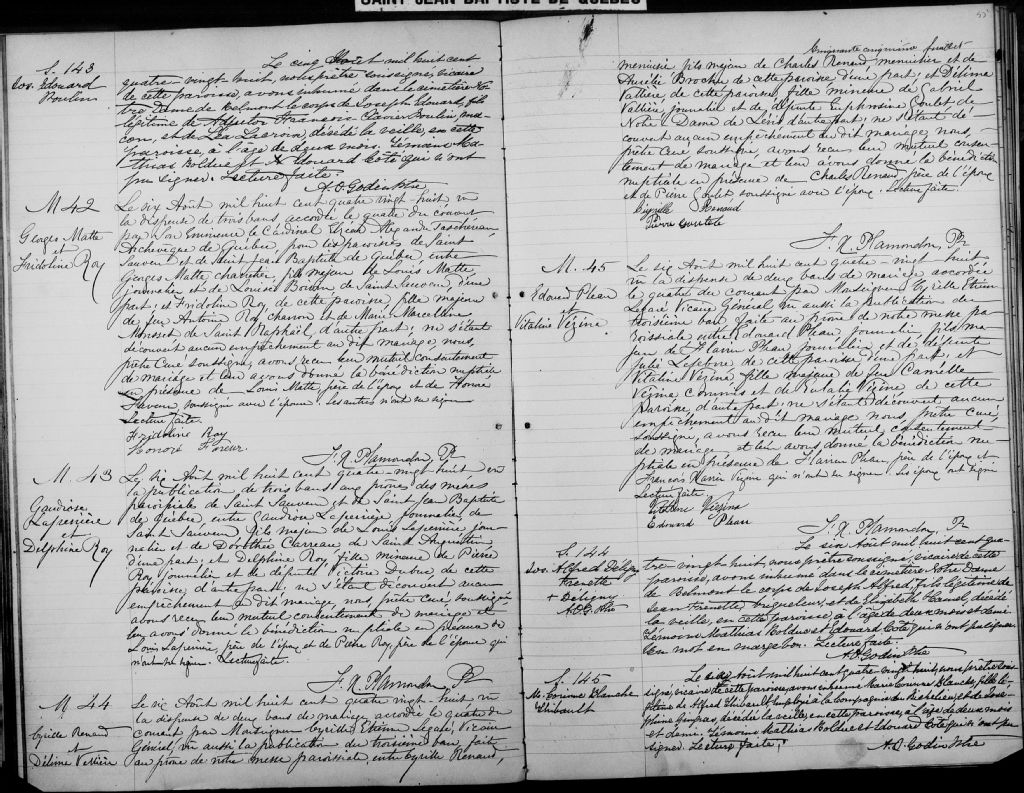 SAINT JEAN BAPTISTE DE QUÉBEC
S. 143
Jos. Edouard
Poulin
Le cinq Août mil huit cent
quatre-vingt-huit, nous prêtre soussigné, vicaire
de cette paroisse, avons inhumé dans le cimetière No-
tre Dame de Belmont le corps de Joseph Edouard, fils
légitime de François Xavier Poulin, ma-
çon, et de Léa Lacroix, décédé la veille, en cette
paroisse, à l'âge de deux mois. Témoins Ma-
thias Bolduc et Edouard Coté qui n'ont
pu signer. Lecture faite.
A. O. Godin Ptre
M 42
Georges Matte
et
Fridoline Roy
Le six Août mil huit cent quatre vingt-huit, vu
la dispense de trois bans accordée le quatre du courant
par Son Eminence le Cardinal Elzéar Alexandre Taschereau
Archevêque de Québec, pour les paroisses de Saint
Sauveur et de Saint Jean Baptiste de Québec, entre
Georges Matte, charretier, fils majeur de Louis Matte,
journalier et de Louise Boivin de Saint Sauveur, d'une
part; et Fridoline Roy de cette paroisse, fille majeure
de feu Antoine Roy, charron et de Marie Marcelline
de Saint Raphaël, d'autre part; ne s'étant
découvert aucun empêchement au dit mariage, nous,
prêtre Curé soussigné, avons reçu leur mutuel consentement
de mariage et leur avons donné la bénédiction nuptiale
en présence de Louis Matte, père de l'époux et de Honoré
soussigné avec l'épouse. Les autres n'ont su signer
Lecture faite.
Fridoline Roy
Honoré
F. X. Plamondon, Ptr
M. 43
Gaudiose
Laperrière
et
Delphine Roy
Le six Août mil huit cent quatre-vingt huit vu
la publication de trois bans aux prônes des messes
paroissiales de Saint Sauveur et de Saint Jean Baptiste
de Québec, entre Gaudiose Laperrière, journalier de
Saint Sauveur, fils majeur de Louis Laperrière, jour-
nalier et de Dorothée Carreau de Sainte
d'une part; et Delphine Roy, fille mineure de Pierre
Roy, journalier et de défunte Victoire Dubuc de cette
paroisse d'autre part; ne s'étant découvert aucun
empêchement au dit mariage, nous, prêtre Curé soussigné
avons reçu leur mutuel consentement de mariage et
leur avons donné la bénédiction nuptiale en présence de
Louis Laperrière, père de l'époux et de Pierre Roy, père de l'épouse qui
n'ont su signer. Lecture faite.
F. X. Plamondon, Ptr
M 44
Cyrille Renaud
et
Délima Vallière
Le six Août mil huit cent quatre vingt huit, vu
la dispense de deux bans de mariage accordée le quatre du
courant par Monseigneur Cyrille Etienne Légaré, Vicaire
Général, vu aussi la publication du troisième ban faite
au prône de notre messe paroissiale entre Cyrille Renaud,
55
Cinquante cinquième feuillet
menuisier fils majeur de Charles Renaud menuisier et de
Aurélie Brochu de cette paroisse d'une part; et Délima
Vallière, de cette paroisse, fille mineure de Gabriel
Vallière, journalier et de défunte Euphrosine Goulet de
Notre Dame de Lévis d'autre part; ne s'étant dé-
couvert aucun empêchement au dit mariage nous,
prêtre Curé soussigné, avons reçu leur mutuel consen-
tement de mariage et leur avons donné la bénédiction
nuptiale en présence de Charles Renaud, père de l'époux
et de Pierre Goulet soussigné avec l'époux. Lecture faite.
Cyrille Renaud
Pierre Goulet
F. X. Plamondon, Ptr
M. 45
Edouard Plean
et
Vitaline Vézina
Le six Août mil huit cent quatre-vingt huit,
vu la dispense de deux bans de mariage accordée
le quatre du courant par Monseigneur Cyrille Etienne
Légaré Vicaire Général, vu aussi la publication du
troisième ban faite au prône de notre messe pa-
roissiale entre Edouard Plean journalier, fils ma-
jeur de Flavien Plean, journalier et de défunte
Julie Lefebvre de cette paroisse d'une part; et
Vitaline Vézina, fille majeure de feu Camille
Vézina Commis et de Eulalie Vézina de cette
paroisse, d'autre part; ne s'étant découvert aucun
empêchement au dit mariage nous, prêtre curé,
soussigné, avons reçu leur mutuel consentement
de mariage et leur avons donné la bénédiction nup-
tiale en présence de Flavien Plean, père de l'époux et
François Xavier Vézina qui n'ont su signer. Les époux ont signé
Lecture faite
Vitaline Vézina
Edouard Plean
F. X. Plamondon, Ptr
S. 144
Jos. Alfred Déligny
Frenette
+ Déligny
A.O.G. Ptre
Le six Août mil huit cent qua-
tre-vingt huit, nous prêtre soussigné, vicaire de cette
paroisse, avons inhumé dans le cimetière Notre Dame
de Belmont le corps de Joseph Alfred, fils légitime de
Jean Frenette, briqueleur, et de Elizabeth Hamel, décédé
la veille, en cette paroisse, à l'âge de deux mois et demi.
Témoins Mathias Bolduc et Edouard Coté qui n'ont pu signer.
Un mot en marge bon. Lecture faite.
A. O. Godin Ptre
S. 145
M. Corinne Blanche
Thibault
Le six Août mil huit cent quatre-vingt huit, nous prêtre sous-
signé, vicaire de cette paroisse, avons inhumé Marie Corinne Blanche, fille lé-
gitime de Alfred Thibault employé à la compagnie du Richelieu, et de Jose-
phine Gingras, décédée la veille, en cette paroisse, à l'âge de deux mois
et demi. Témoins Mathias Bolduc et Edouard Coté qui n'ont pu
signer. Lecture faite.
A. O. Godin Ptre